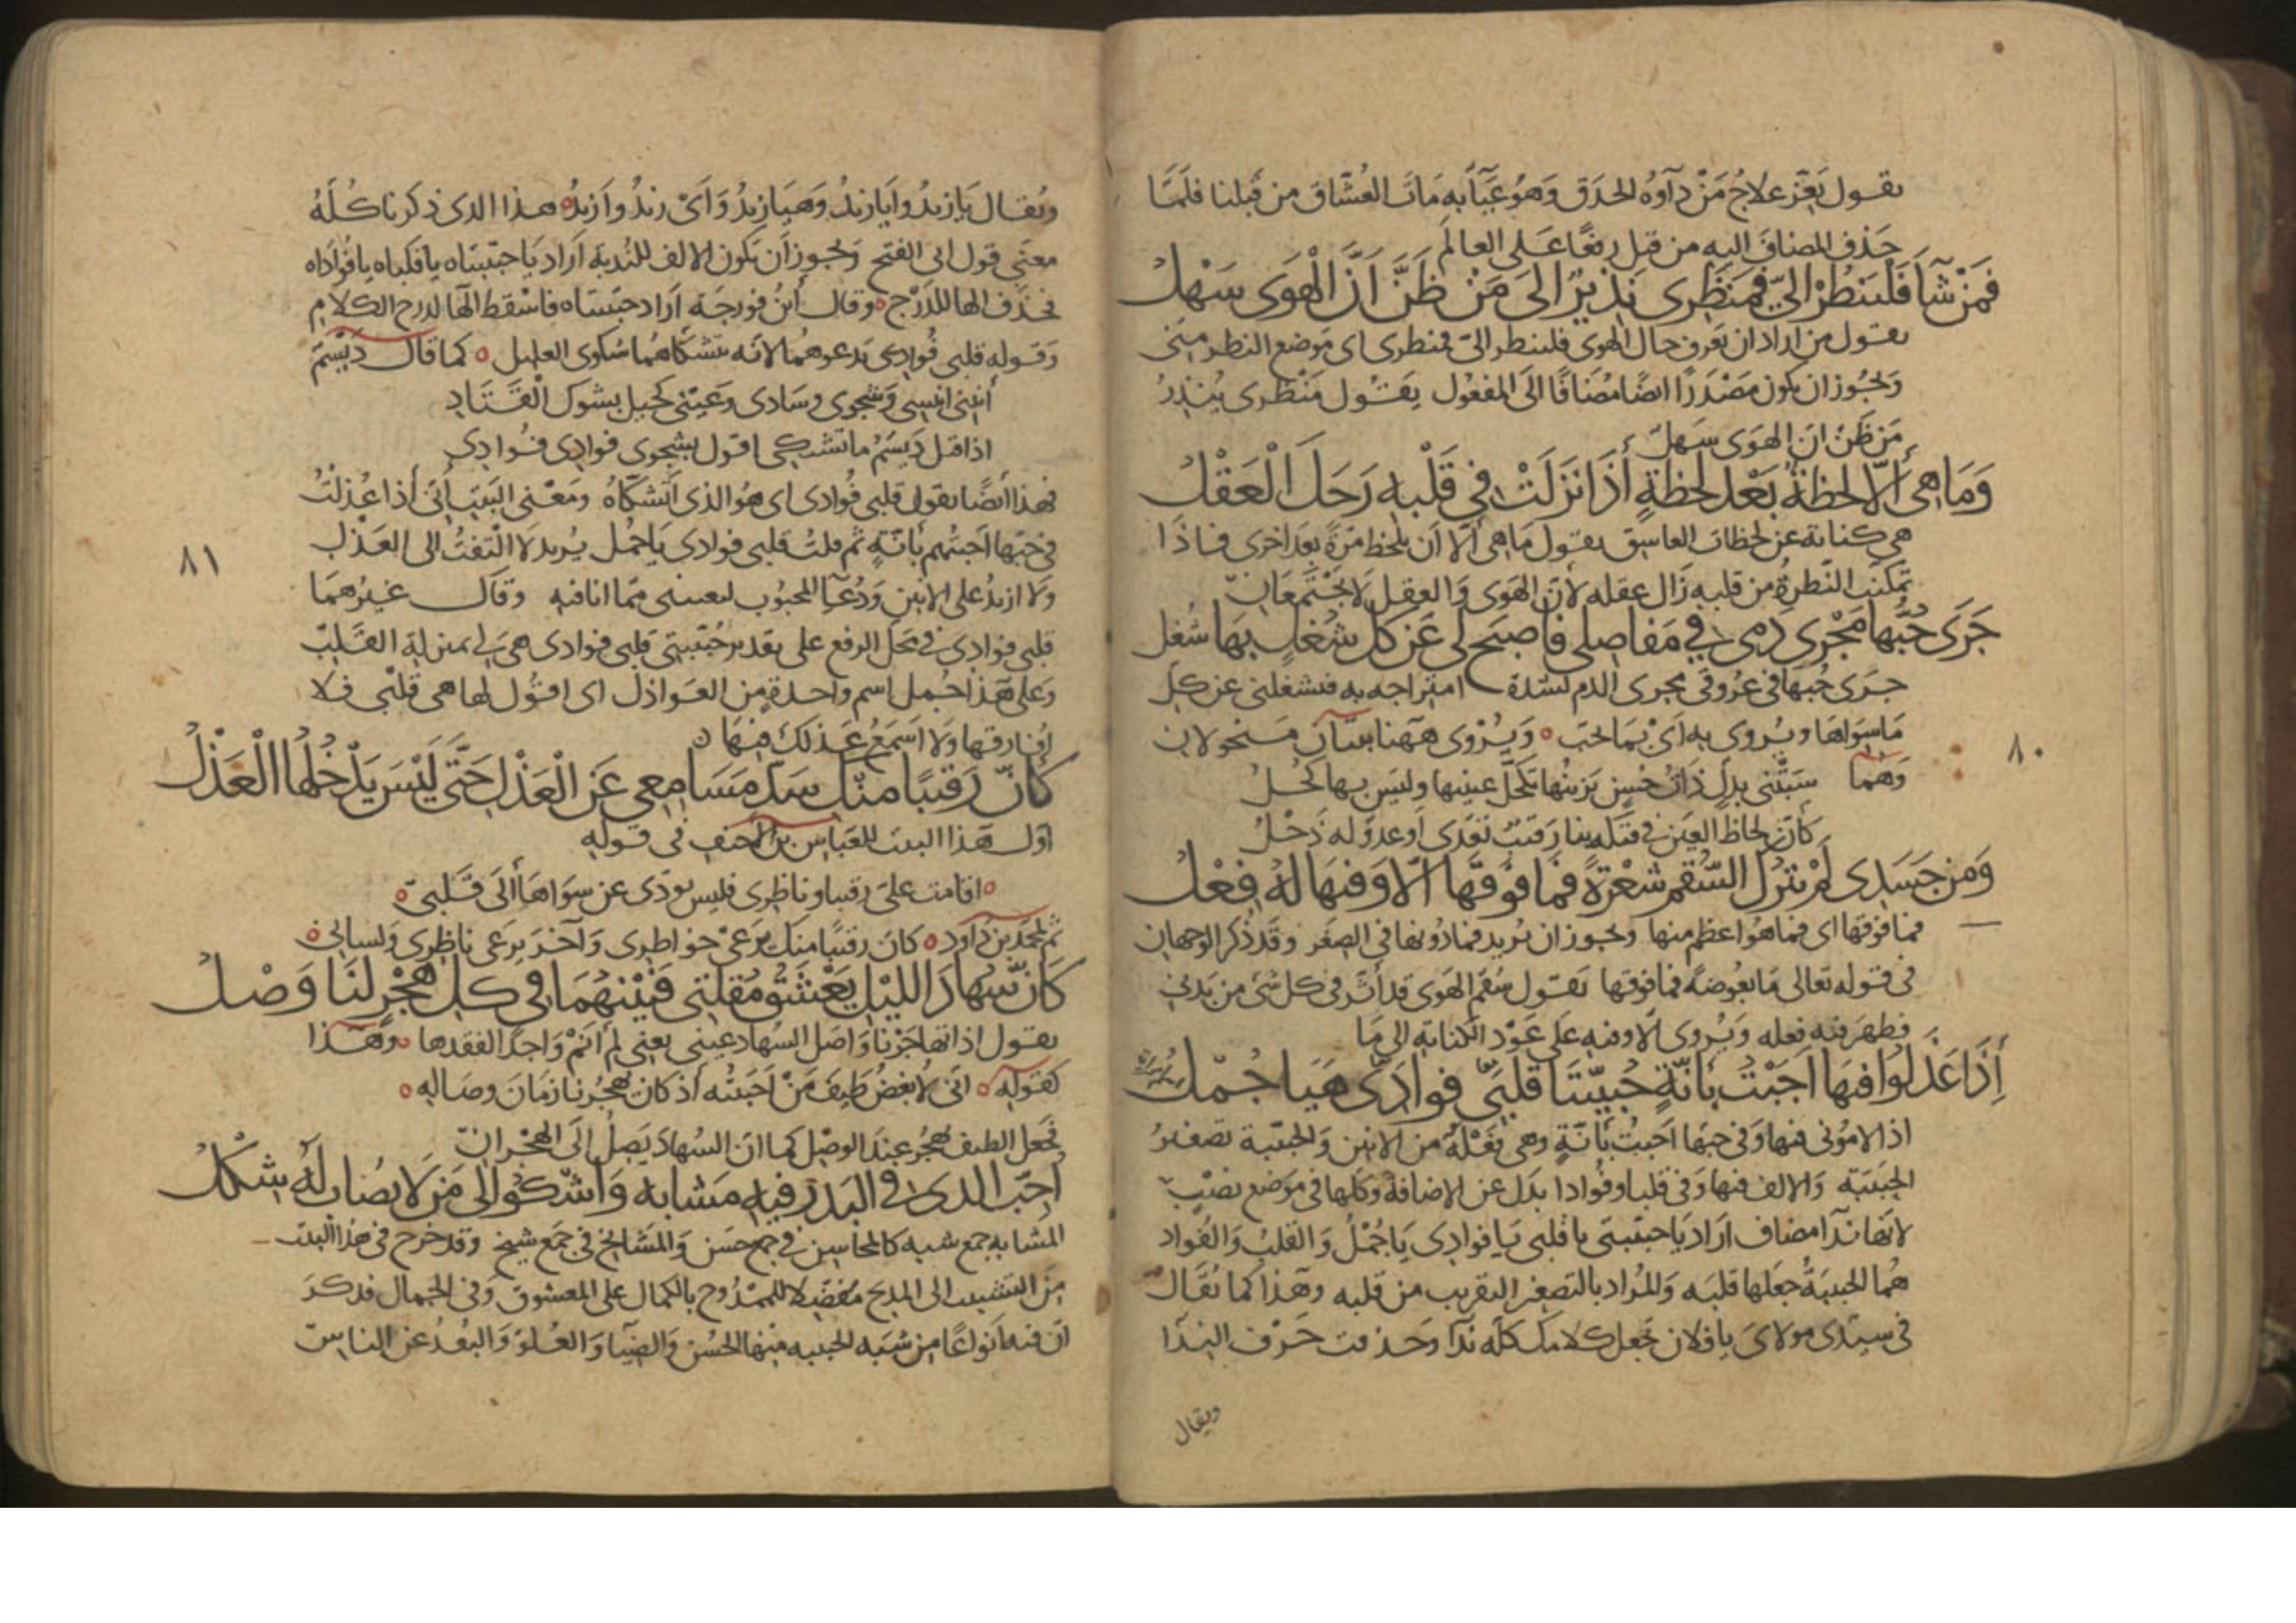 يقول يعز علاج من دآوه الحدق وهو عيآ به مات العشاق من قبلنا فلما
حذف المضاف اليه من قبل رفعا على العالم
فمن شآ فلينظر الي فمنظرى نذير الى من ظن ان الهوى سهل
يقول من اراد ان يعرف حال الهوى فلينظر الي فمنظرى اى موضع النظر منى
ويجوز ان يكون مصدرا ايضا مضافا الى المفعول يقول منظرى ينذر
من ظن ان الهوى سهل
وما هى الا لحظة بعد لحظة اذا نزلت فى قلبه رحل العقل
هى كناية عن لحظات العاشق يقول ما هى الا ان يلحظ مرة بعد اخرى فاذا
تمكنت النظرة من قلبه زال عقله لان الهوى والعقل لا يجتمعان
جرى حبها مجرى دمى فى مفاصلى فاصبح لى عن كل شغل بها شغل
جرى حبها فى عروقى مجرى الدم لشدة امتزاجه به فشغلنى عن كل
ما سواها ويروى به اى بما لحب ويروى ههنا بيتان منحولان
وهما سبتنى بدل ذات حسن يزينها تكحل عينيها وليس بها كحل
كأن لحاظ العين فى فتكه بنا رقيب تعدى او عدو له ذحل
ومن جسدى لم يترك السقم شعرة فما فوقها الا وفيها له فعل
فما فوقها اى فما هو اعظم منها ويجوز ان يريد فما دونها فى الصغر وقد ذكر الوجهان
فى قوله تعالى ما بعوضة فما فوقها يقول سقم الهوى قد اثر فى كل شى من بدنى
فظهر فيه فعله ويروى الا وفيه على عود الكناية الى ما
اذا عذلوا فيها اجبت بانة حبيبتا قلبى فوادى هيا جمل
اذا لامونى فيها وفى حبها اجبت بانة وهى فعلة من الانين والحبيبة تصغير
الحبيبة والالف فيها وفى قلبا وفوادا بدل عن الاضافة وكلها فى موضع نصب
لانها ندآ مضاف اراد يا حبيبتى يا قلبى يا فوادى يا جمل والقلب والفواد
هما الحبيبة جعلها قلبه والمراد بالتصغير التقريب من قلبه وهذا كما يقال
فى سيدى مولاى يا فلان تجعل كلامك كله ندآ وحذفت حرف الندآ
ويقال
٨٠
ويقال يا زيد وايا زيد وهيا زيد واى زيد وا زيد هذا الذى ذكرنا كله
معنى قول ابى الفتح ويجوز ان يكون الالف للندبة اراد يا حبيبتاه يا قلباه يا فواداه
فحذف الها للدرج وقال ابن فورجه اراد حبيبتاه فاسقط الها لدرج الكلام
وقوله قلبى فوادى يدعوهما لانه يتشكاهما شكوى العليل كما قال ديسم
أنينى انيسى وشجوى وسادى وعينى كحيل بشوك القتاد
اذا قيل ديسم ما تشتكى اقول بشجوى فوادى فوادى
فهذا ايضا يقول قلبى فوادى اى هو الذى اتشكاه ومعنى البيت أنى اذا عذلت
فى حبها اجبتهم بانة ثم قلت قلبى فوادى يا جمل يريد لا التفت الى العذل
ولا ازيد على الانين ودعآ المحبوب ليعيننى مما انا فيه وقال غيرهما
قلبى فوادى فى محل الرفع على تقدير حبيبتى قلبى فوادى هى لى بمنزلة القلب
وعلى هذا جمل اسم واحدة من العواذل اى اقول لها هى قلبى فلا
افارقها ولا اسمع عذلك فيها
كأن رقيبا منك سد مسامعى عن العذل حتى ليس يدخلها العذل
اول هذا البيت للعباس بن الاحنف فى قوله
اقامت على رقيبا وناظرى فليس يودى عن سواها الى قلبى
ثم لمحمد بن داود كان رقيبا منك يرعى خواطرى وآخر يرعى ناظرى ولسانى
كأن سهاد الليل يعشق مقلتى فبينهما فى كل هجر لنا وصل
يقول اذا تهاجرنا واصل السهاد عينى يعنى لم انم واجدا لفقدها وهذا
كقوله انى لابغض طيف من احببته اذ كان يهجرنا زمان وصاله
فجعل الطيف يهجر عند الوصل كما ان السهاد يصل الى الهجران
أحب الذى فى البدر فيه مشابه واشكو الى من لا يصاب له شكل
المشابه جمع شبه كالمحاسن فى جمع حسن والمشايخ فى جمع شيخ وقد خرج فى هذا البيت
من التشبيب الى المديح مفضلا للممدوح بالكمال على المعشوق وفى الجمال فذكر
ان فيه انواعا من شبه الحبيبه منها الحسن والضيآ والعلو والبعد عن الناس
٨١